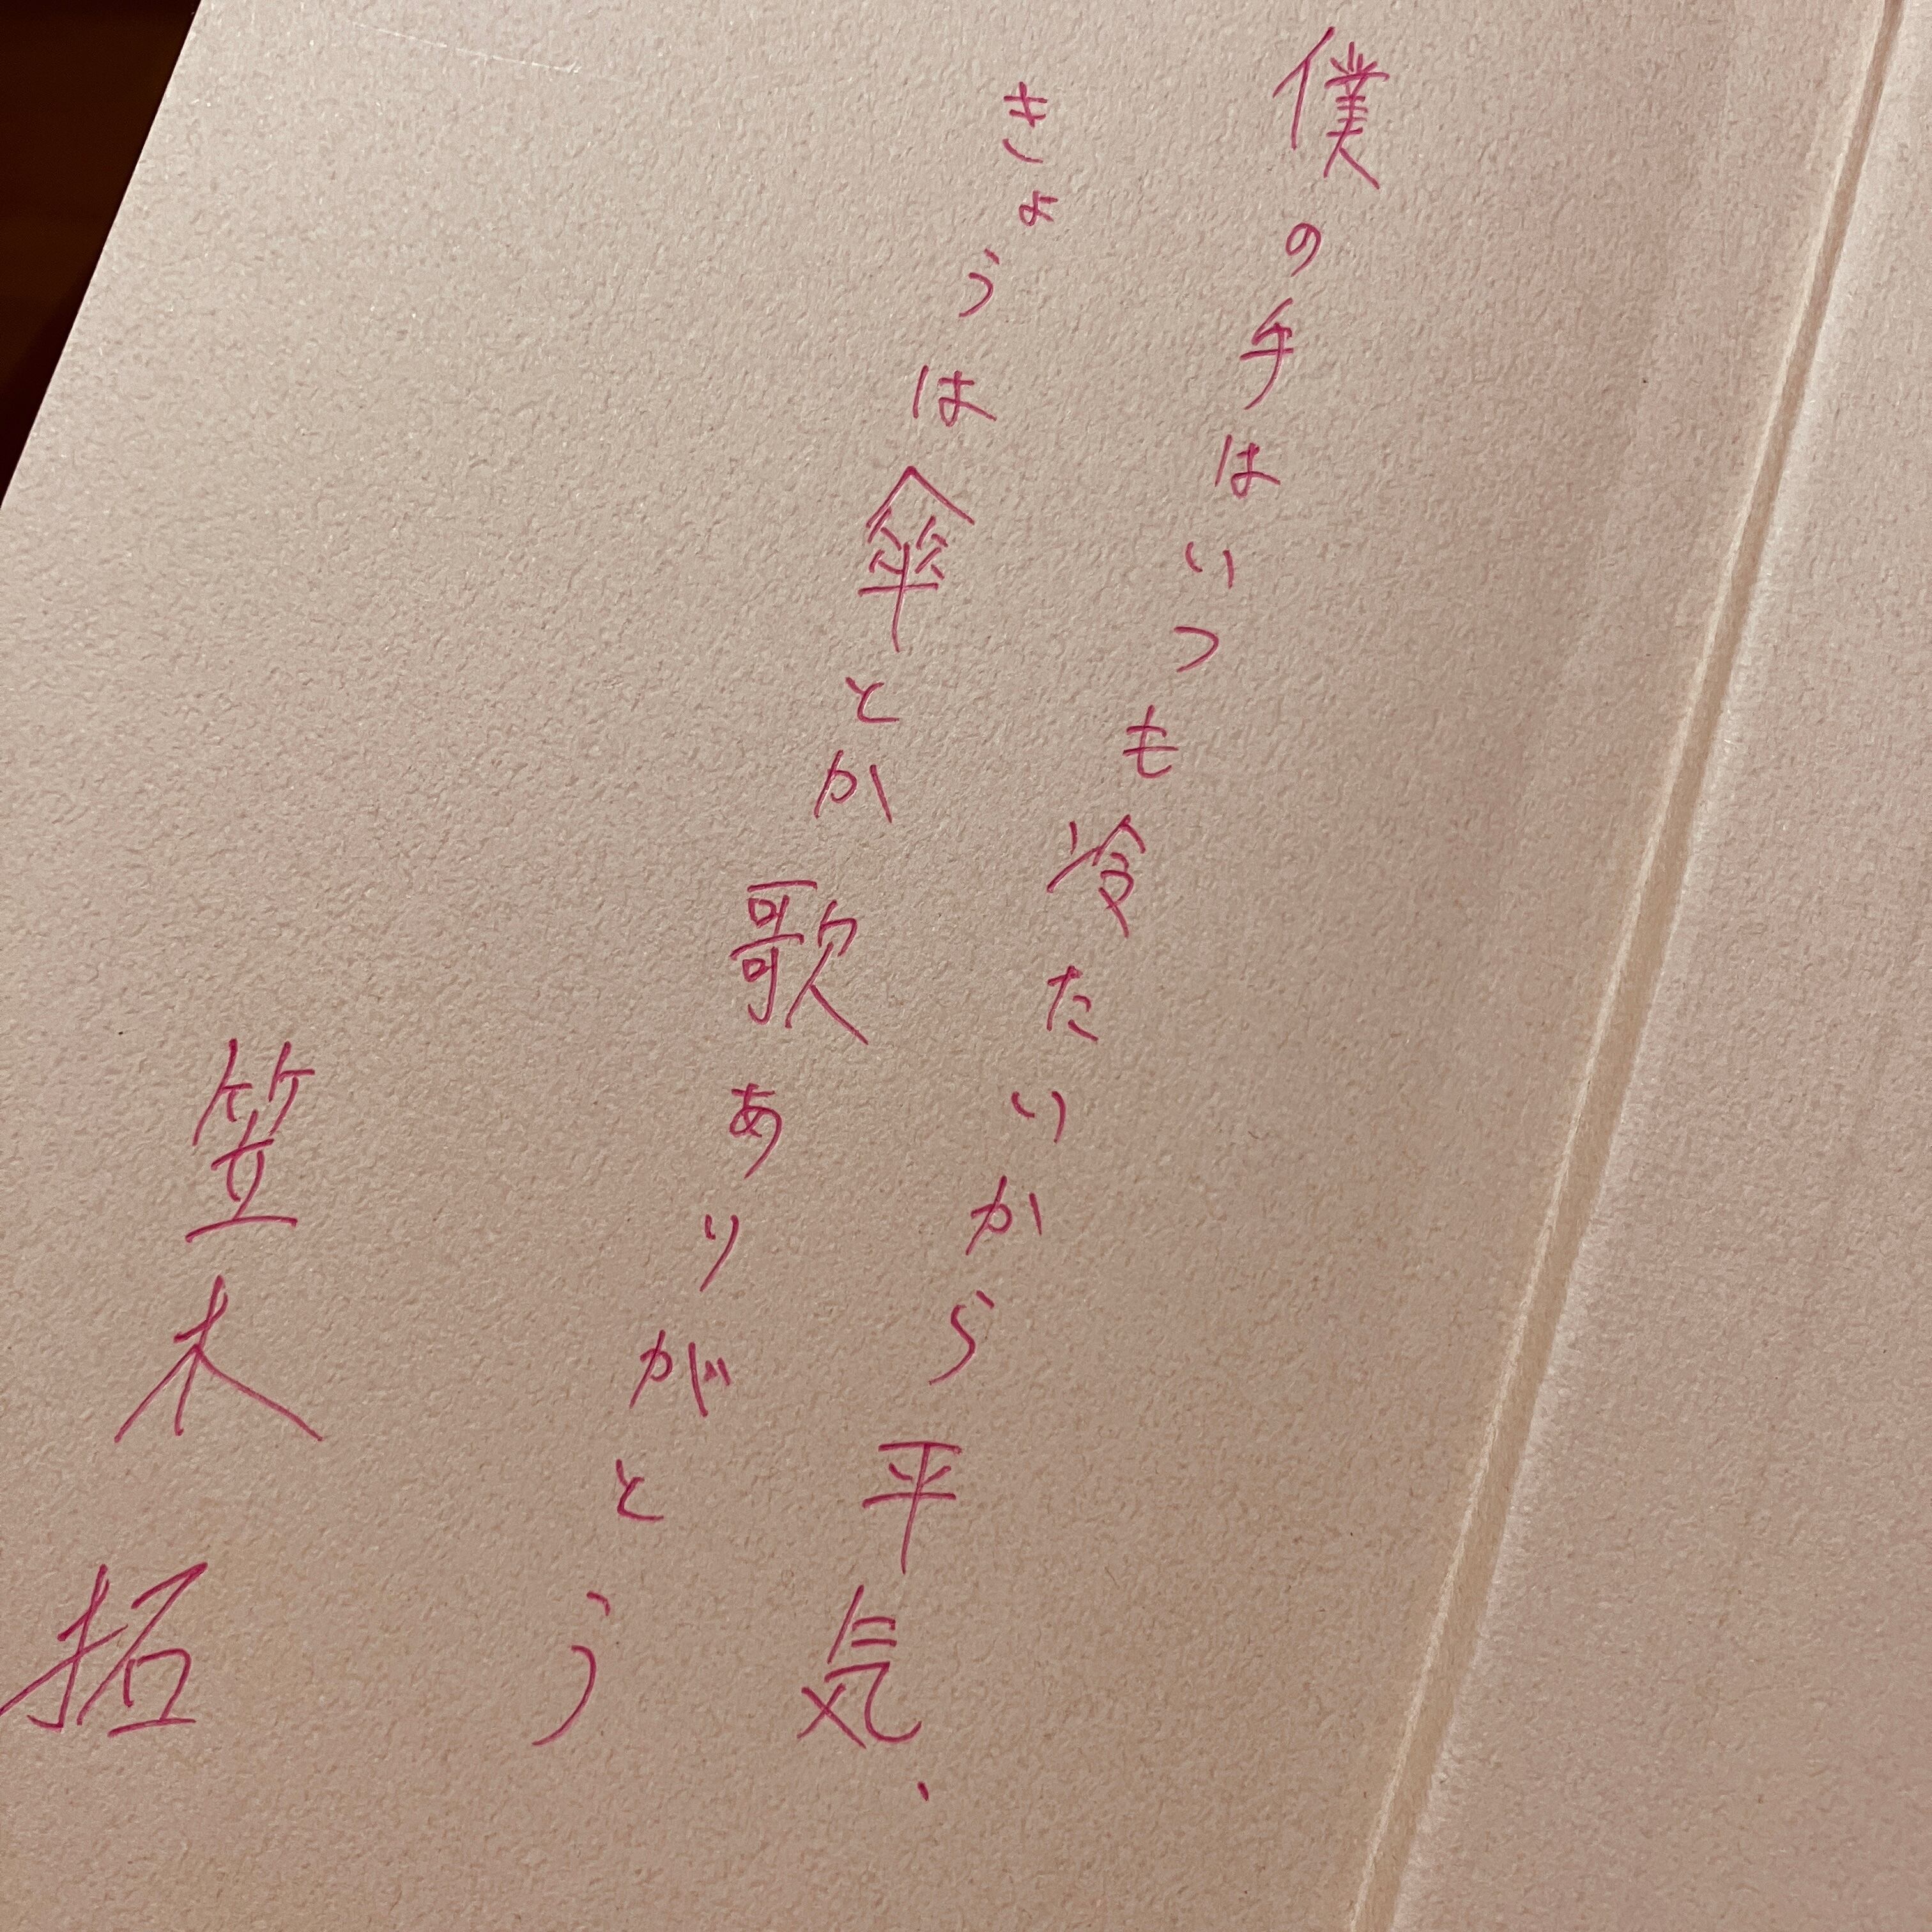 僕の手はいつも冷たいから平気、
きょうは傘とか歌ありがとう
笠木拓